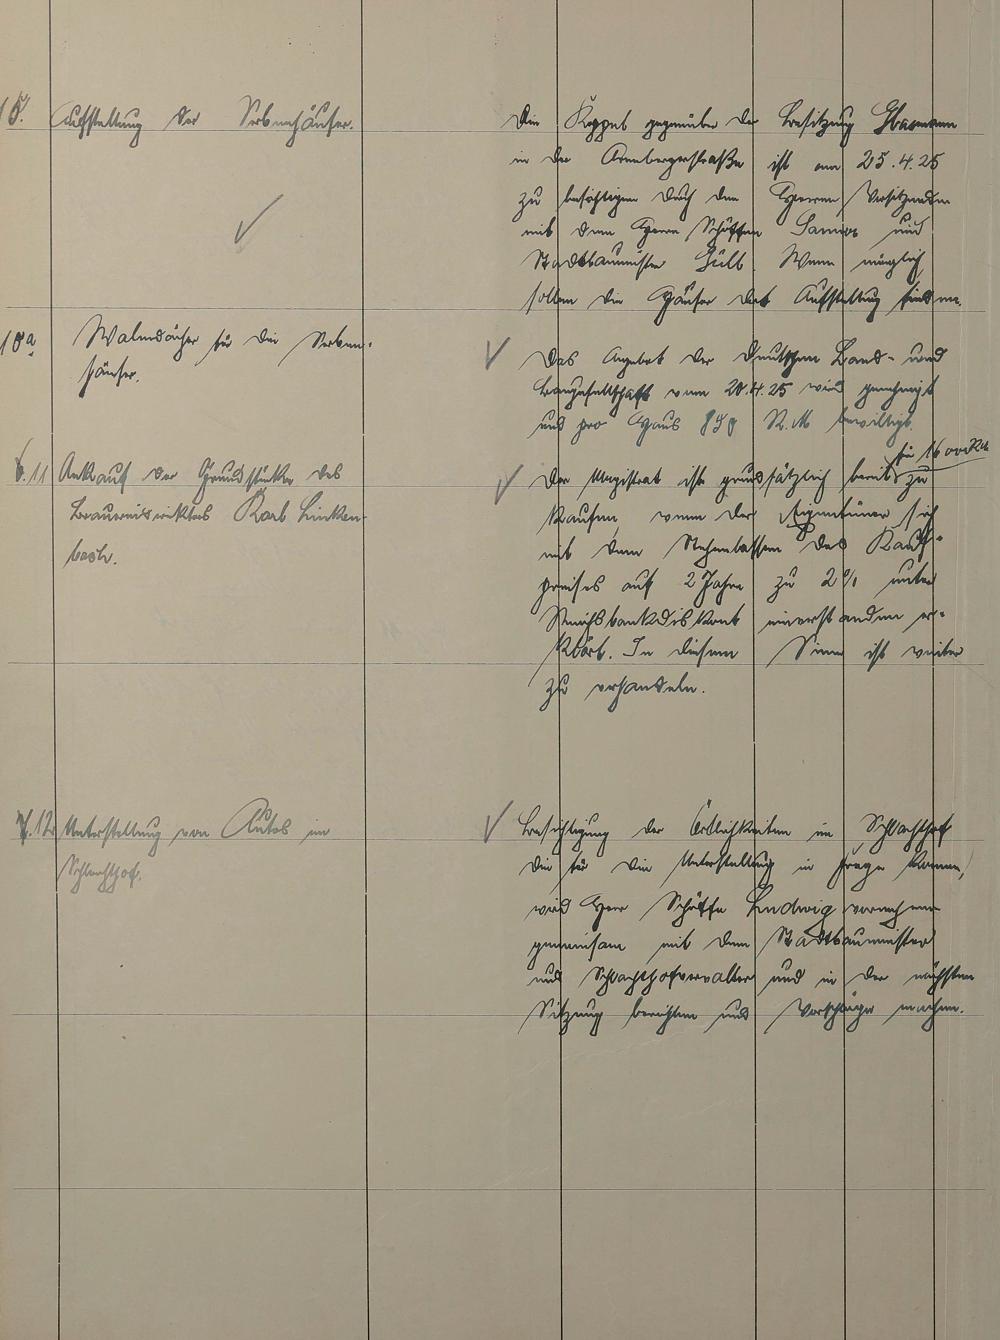 Aufstellung der Serbenhäuser.
Die Koppel gegenüber der Besitzung
in der Arenbergerstraße ist am 25.4.25
zu besichtigen durch den Herrn Vorsitzenden
mit dem Herrn Schöffen und
Stadtbaumeister Gülb. Wenn möglich
sollen die Häuser dort Aufstellung finden.
10a Walmdächer für die Serben-
häuser.
Das Angebot der Deutschen Land- und
Baugesellschaft vom 20.4.25 wird genehmigt
und pro Haus 850 R.M bewilligt.
11 Ankauf der Grundstücke des
Brauereidirektors Karl Linken-
bach.
für 16000 RM
Der Magistrat ist grundsätzlich bereit zu
kaufen, wenn der Eigentümer sich
mit dem Stehenlassen des Kauf-
preises auf 2 Jahre zu 2% unter
Reichsbankdiskont einverstanden er-
klärt. In diesem Sinne ist weiter
zu verhandeln.
12 Unterstellung von Autos im
Schlachthof.
Besichtigung der Örtlichkeiten im Schlachthof
die für die Unterstellung in Frage kommen,
wird Herr Schöffe Ludwig vornehmen
gemeinsam mit dem Stadtbaumeister
und Schlachthofverwalter und in der nächsten
Sitzung berichten und Vorschläge machen.